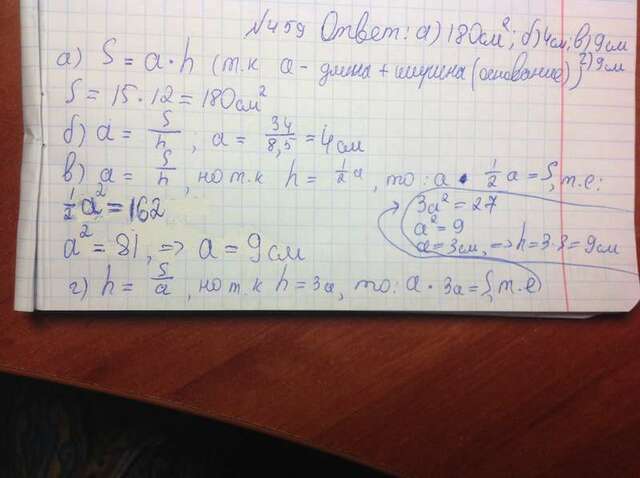 №459 Ответ: а) 180см²; б) 4см; в) 9см
г) 9см
а) S = a · h (т.к a - длина + ширина (основание))
S = 15 · 12 = 180см²
б) a = S/h ; a = 34/8,5 = 4см
в) a = S/h, но т.к h = 1/2 a, то: a · 1/2 a = S, т.е:
1/2 a² = 162
a² = 81, => a = 9см
г) h = S/a, но т.к h = 3a, то: a · 3a = S, т.е
3a² = 27
a² = 9
a = 3см, => h = 3·3 = 9см